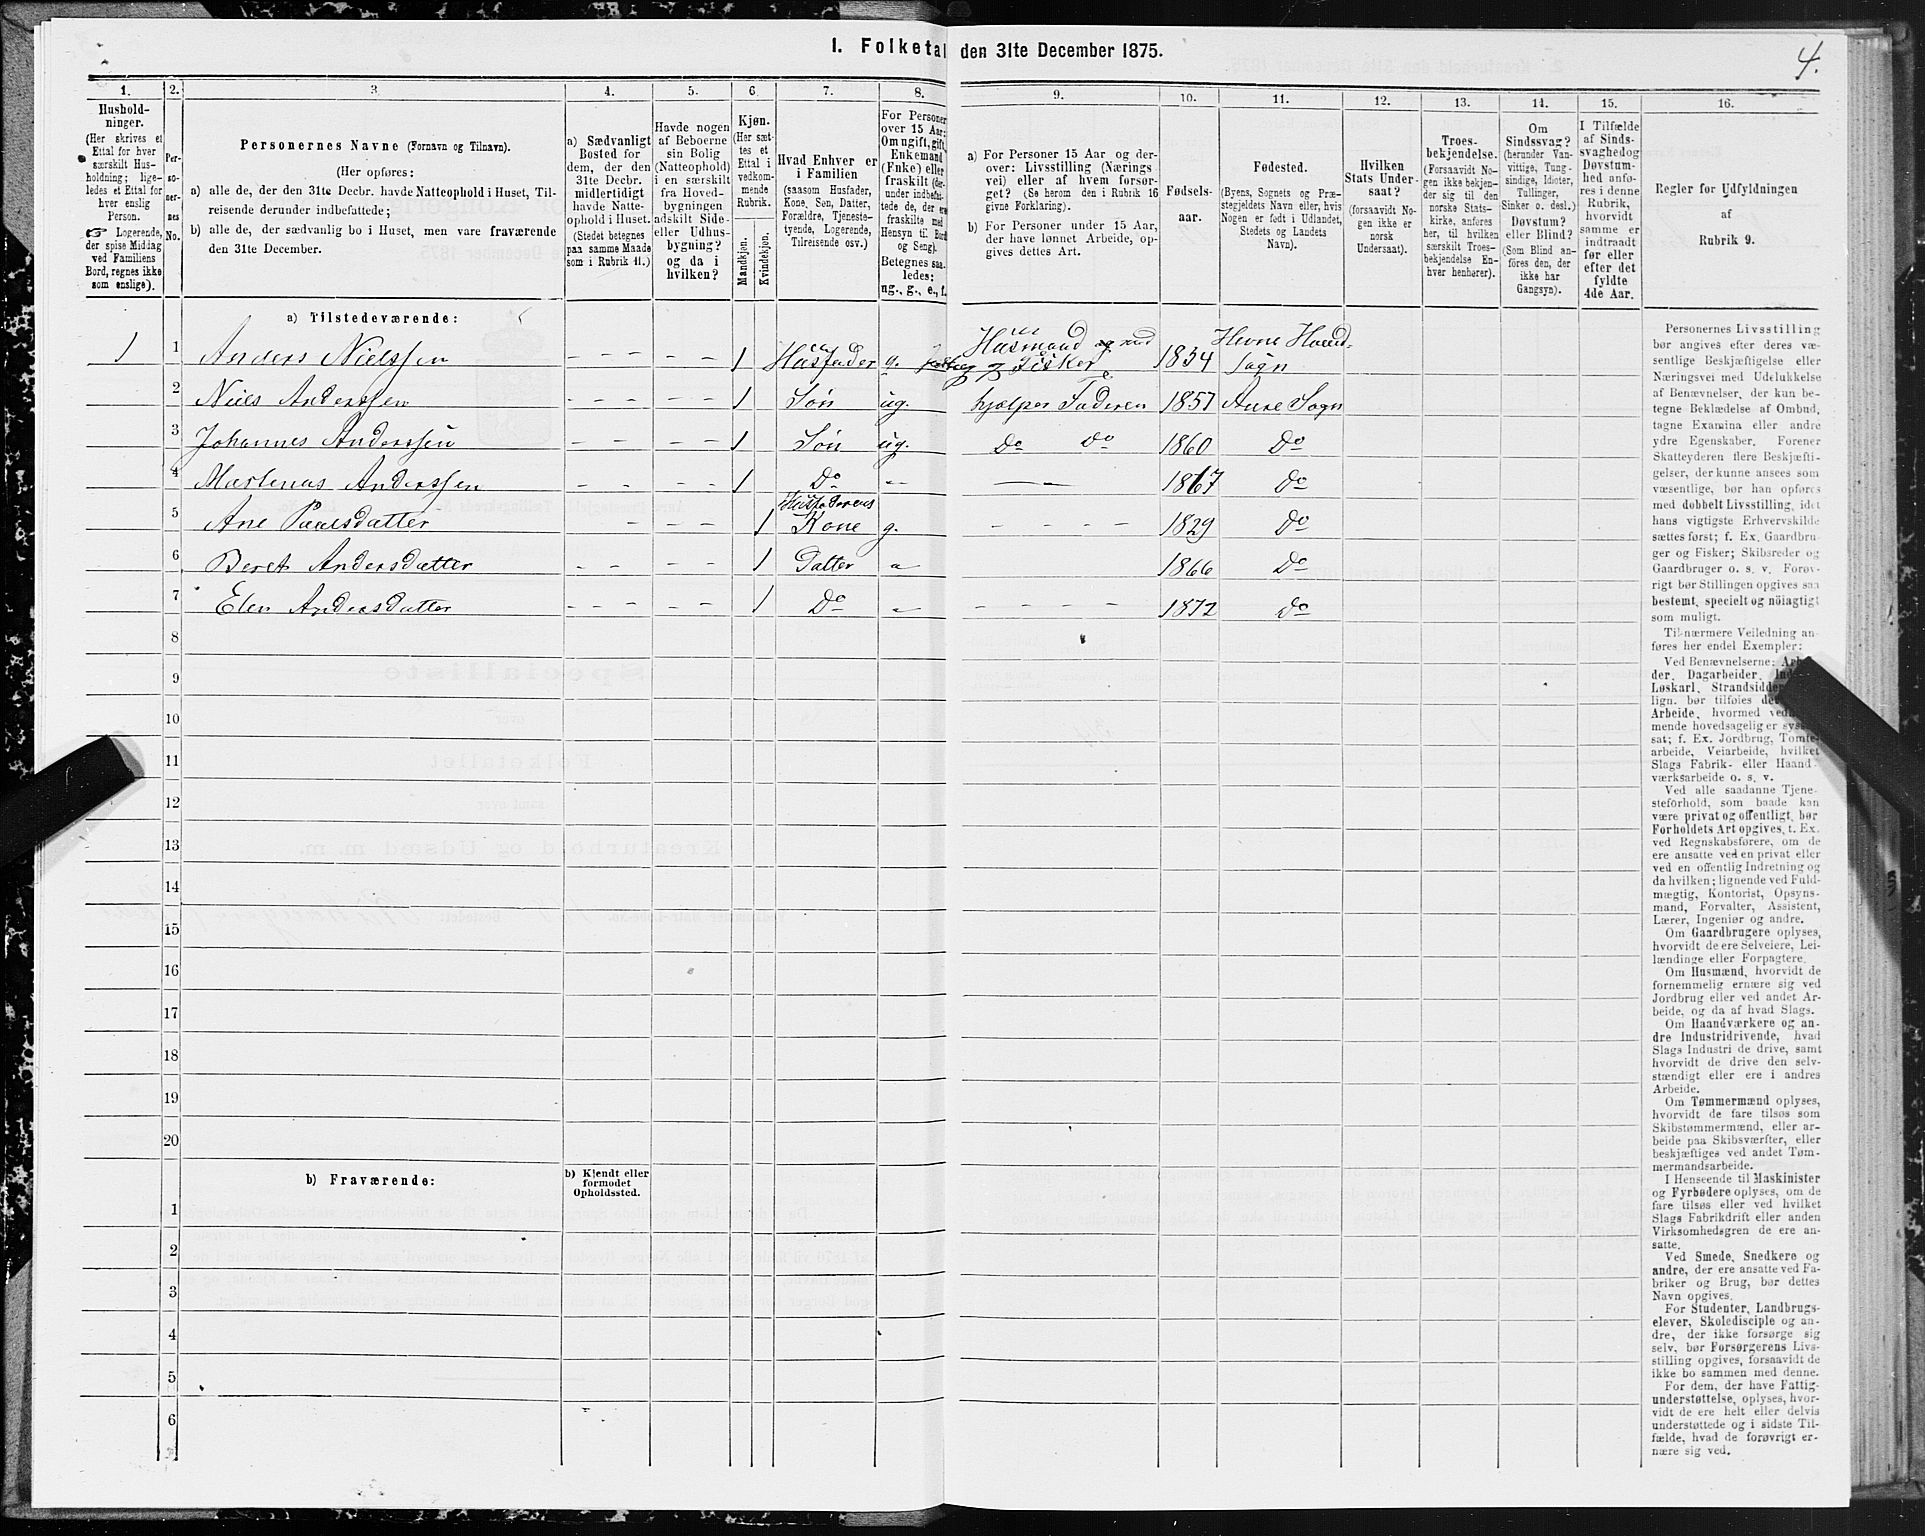 I. Folketal den 31te December 1875.
4.
1.
Hushold-
ninger.
(Her skrives et
Ettal for hver
særskilt Hus-
holdning; lige-
ledes et Ettal for
hver enslig
Person.
Logerende,
der spise Middag
ved Familiens
Bord, regnes ikke
som enslige).
2.
Per-
so-
ner-
nes
No.
3.
Personernes Navne (Fornavn og Tilnavn).
(Her opføres:
a) alle de, der den 31te Decbr. havde Natteophold i Huset, Til-
reisende derunder indbefattede;
b) alle de, der sædvanlig bo i Huset, men vare fraværende
den 31te December.
4.
a) Sædvanligt
Bosted for
dem, der den
31te Decbr.
midlertidigt
havde Natte-
ophold i Huset.
(Stedet betegnes
paa samme Maade
som i Rubrik 11.)
5.
Havde nogen
af Beboerne
sin Bolig
(Natteophold)
i en særskilt
fra Hoved-
bygningen
adskilt Side-
eller Udhus-
bygning?
og da i
hvilken?
6.
Kjøn.
(Her sæt-
tes et
Ettal i
vedkom-
mende
Rubrik.
Mandkjøn.
Kvindekjøn.
7.
Hvad Enhver er
i Familien
(saasom Husfader,
Kone, Søn, Datter,
Forældre, Tjeneste-
tyende, Logerende,
Tilreisende osv.)
8.
For Personer
over 15 Aar:
Om ugift, gift,
Enkemand
(Enke) eller
fraskilt (der-
under indbefat-
tede de, der ere
fraskilte med
Hensyn til Bord
og Seng).
Betegnes saa-
ledes:
ug., g., e., f.
9.
a) For Personer 15 Aar og der-
over: Livsstilling (Nærings
vei) eller af hvem forsør-
get? (Se herom den i Rubrik 16
givne Forklaring).
b) For Personer under 15 Aar,
der have lønnet Arbeide, op-
gives dettes Art.
10.
Fødsels-
aar.
11.
Fødested.
(Byens, Sognets og Præ-
stegjeldets Navn eller, hvis
Nogen er født i Udlandet,
Stedets og Landets
Navn).
12.
Hvilken
Stats Under-
saat?
(forsaavidt No-
gen ikke er
norsk
Undersaat).
13.
Troes-
bekjendelse.
(Forsaavidt No-
gen ikke bekjen-
der sig til den
norske Stats-
kirke, anføres
her, til hvilken
særskilt Troes-
bekjendelse En-
hver henhører).
14.
Om
Sindssvag?
(herunder Van-
vittige, Tung-
sindige, Idioter,
Tullinger,
Sinker o. desl.)
Døvstum?
eller Blind?
(Som Blind an-
føres den, der
ikke har
Gangsyn).
15.
I Tilfælde
af Sinds-
svaghed og
Døvstum-
hed anfø-
res i denne
Rubrik,
hvorvidt
samme er
indtraadt
før eller
efter det
fyldte
4de Aar.
16.
Regler for Udfyldningen
af
Rubrik 9.
a) Tilstedeværende:
1 1 Anders Nielssen – – – – – 1 Husfader g. Husmand og Fisker 1834 Hevne Hoved- Sogn
2 Niels Anderssen – – – – – 1 Søn ug. hjelper Faderen 1857 Aure Sogn
3 Johannes Anderssen – – – – 1 Søn ug. Do Do 1860 Do
4 Martenas Anderssen – – – – 1 Do 1867 Do
5 Ane Paalsdatter – – – 1 Husfaderens Kone g. – – – – 1829 Do
6 Beret Andersdatter – – – – 1 Datter 1866 Do
7 Elen Andersdatter – – – – 1 Do – – – – 1872 Do
8
9
10
11
12
13
14
15
16
17
18
19
20
b) Fraværende:
b) Kjendt eller
formodet
Opholdssted.
1
2
3
4
5
6
Personernes Livsstilling
bør angives efter deres væ-
sentlige Beskjæftigelse eller
Næringsvei med Udelukkelse
af Benævnelser, der kun be-
tegne Beklædelse af Ombud,
tagne Examina eller andre
ydre Egenskaber. Forener
Skatteyderen flere Beskjæfti-
gelser, der kunne ansees som
væsentlige, bør han opføres
med dobbelt Livsstilling, idet
hans vigtigste Erhvervskilde
sættes først; f. Ex. Gaardbru-
ger og Fisker; Skibsreder og
Gaardbruger o. s. v. Forøv-
rigt bør Stillingen opgives saa
bestemt, specielt og nöiagtigt
som muligt.
Til nærmere Veiledning an-
føres her endel Exempler:
Ved Benævnelserne:
der, Dagarbeider,
Løskarl, Strandsidder
lign. bør tilføies
Arbeide, hvormed
mende hovedsagelig er
sat; f. Ex. Jordbrug, Tomte-
arbeide, Veiarbeide, hvilket
Slags Fabrik- eller Haand-
værksarbeide o. s. v.
Ved alle saadanne Tjene-
steforhold, som baade kan
være privat og offentligt, bør
Forholdets Art opgives, t. Ex.
ved Regnskabsførere, om de
ere ansatte ved en privat eller
ved en offentlig Indretning og
da hvilken; lignende ved Fuld-
mægtig, Kontorist, Opsyns-
mand, Forvalter, Assistent,
Lærer, Ingeniør og andre.
Om Gaardbrugere oplyses,
hvorvidt de ere Selveiere, Lei-
lændinge eller Forpagtere.
Om Husmænd, hvorvidt de
fornemmelig ernære sig ved
Jordbrug eller ved andet Ar-
beide, og da af hvad Slags.
Om Haandværkere og an-
dre Industridrivende, hvad
Slags Industri de drive, samt
hvorvidt de drive den selv-
stændigt eller ere i andres
Arbeide.
Om Tømmermænd oplyses,
hvorvidt de fare tilsøs som
Skibstømmermænd, eller ar-
beide paa Skibsværfter, eller
beskjæftiges ved andet Tøm-
mermandsarbeide.
I Henseende til Maskinister
og Fyrbødere oplyses, om de
fare tilsøs eller ved hvilket
Slags Fabrikdrift eller anden
Virksomhedsgren de ere an-
satte.
Ved Smede, Snedkere og
andre, der ere ansatte ved Fa-
briker og Brug, bør dettes
Navn opgives.
For Studenter, Landbrugs-
elever, Skoledisciple og an-
dre, der ikke forsørge sig
selv, bør Forsørgerens Livs-
stilling opgives, forsaavidt de
ikke bo sammen med denne.
For dem, der have Fattig-
understøttelse, oplyses, hvor-
vidt de ere helt eller delvis
understøttede og i sidste Til-
fælde, hvad de forøvrigt er-
nære sig ved.